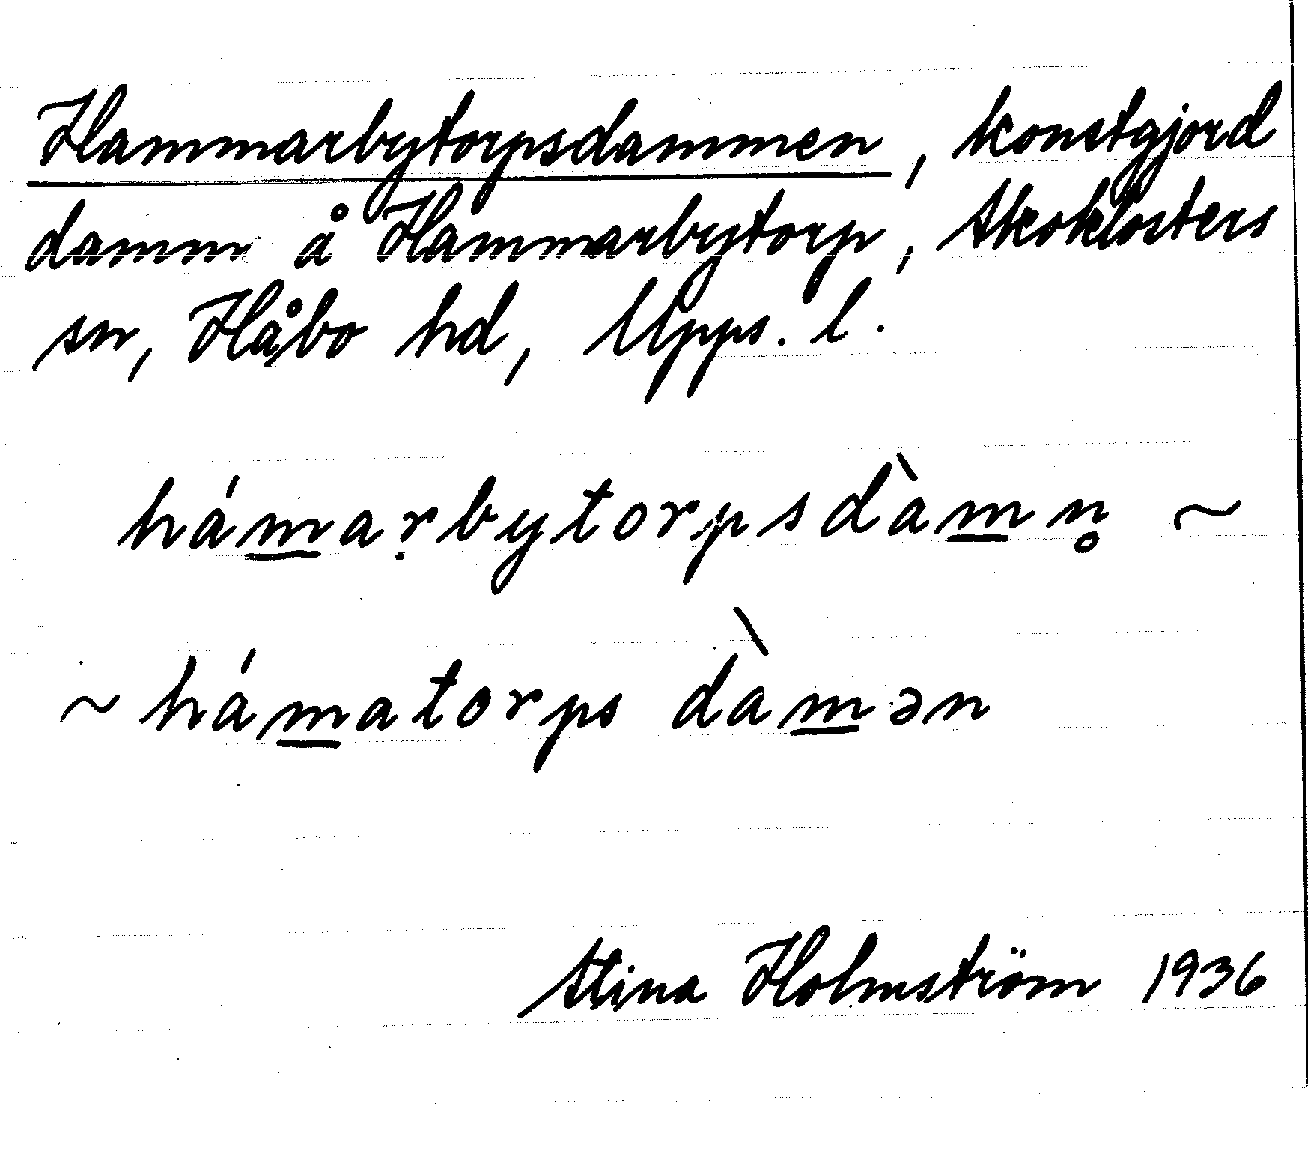 Hammarbytorpsdammen, konstgjord
damm å Hammarbytorp, Skoklosters
sn, Håbo hd, Upps. l.
hám̲aṛbytorpsdàm̲n̥ ~
~ hám̲atorps dàm̲ən
Stina Holmström 1936